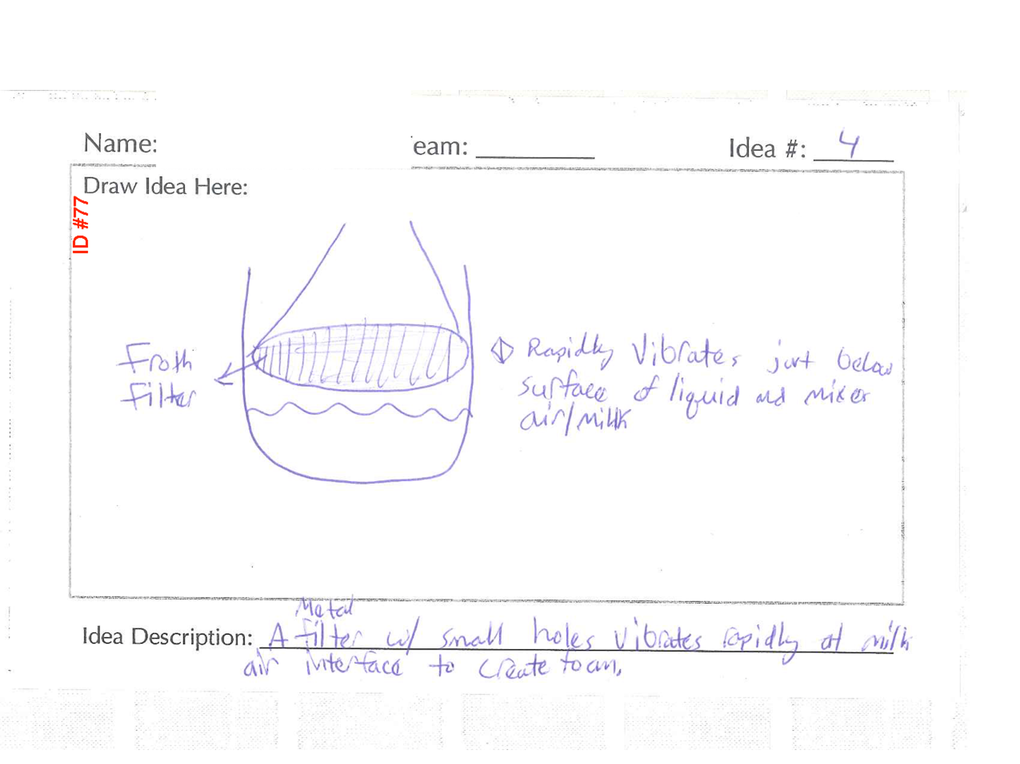 Name:
eam:
Idea #: 4
Draw Idea Here:
ID #77
Froth
Filter
Rapidly Vibrates just below
surface of liquid and mixer
air/milk
Metal
Idea Description: A filter w/ small holes vibrates rapidly at milk
air interface to create foam.